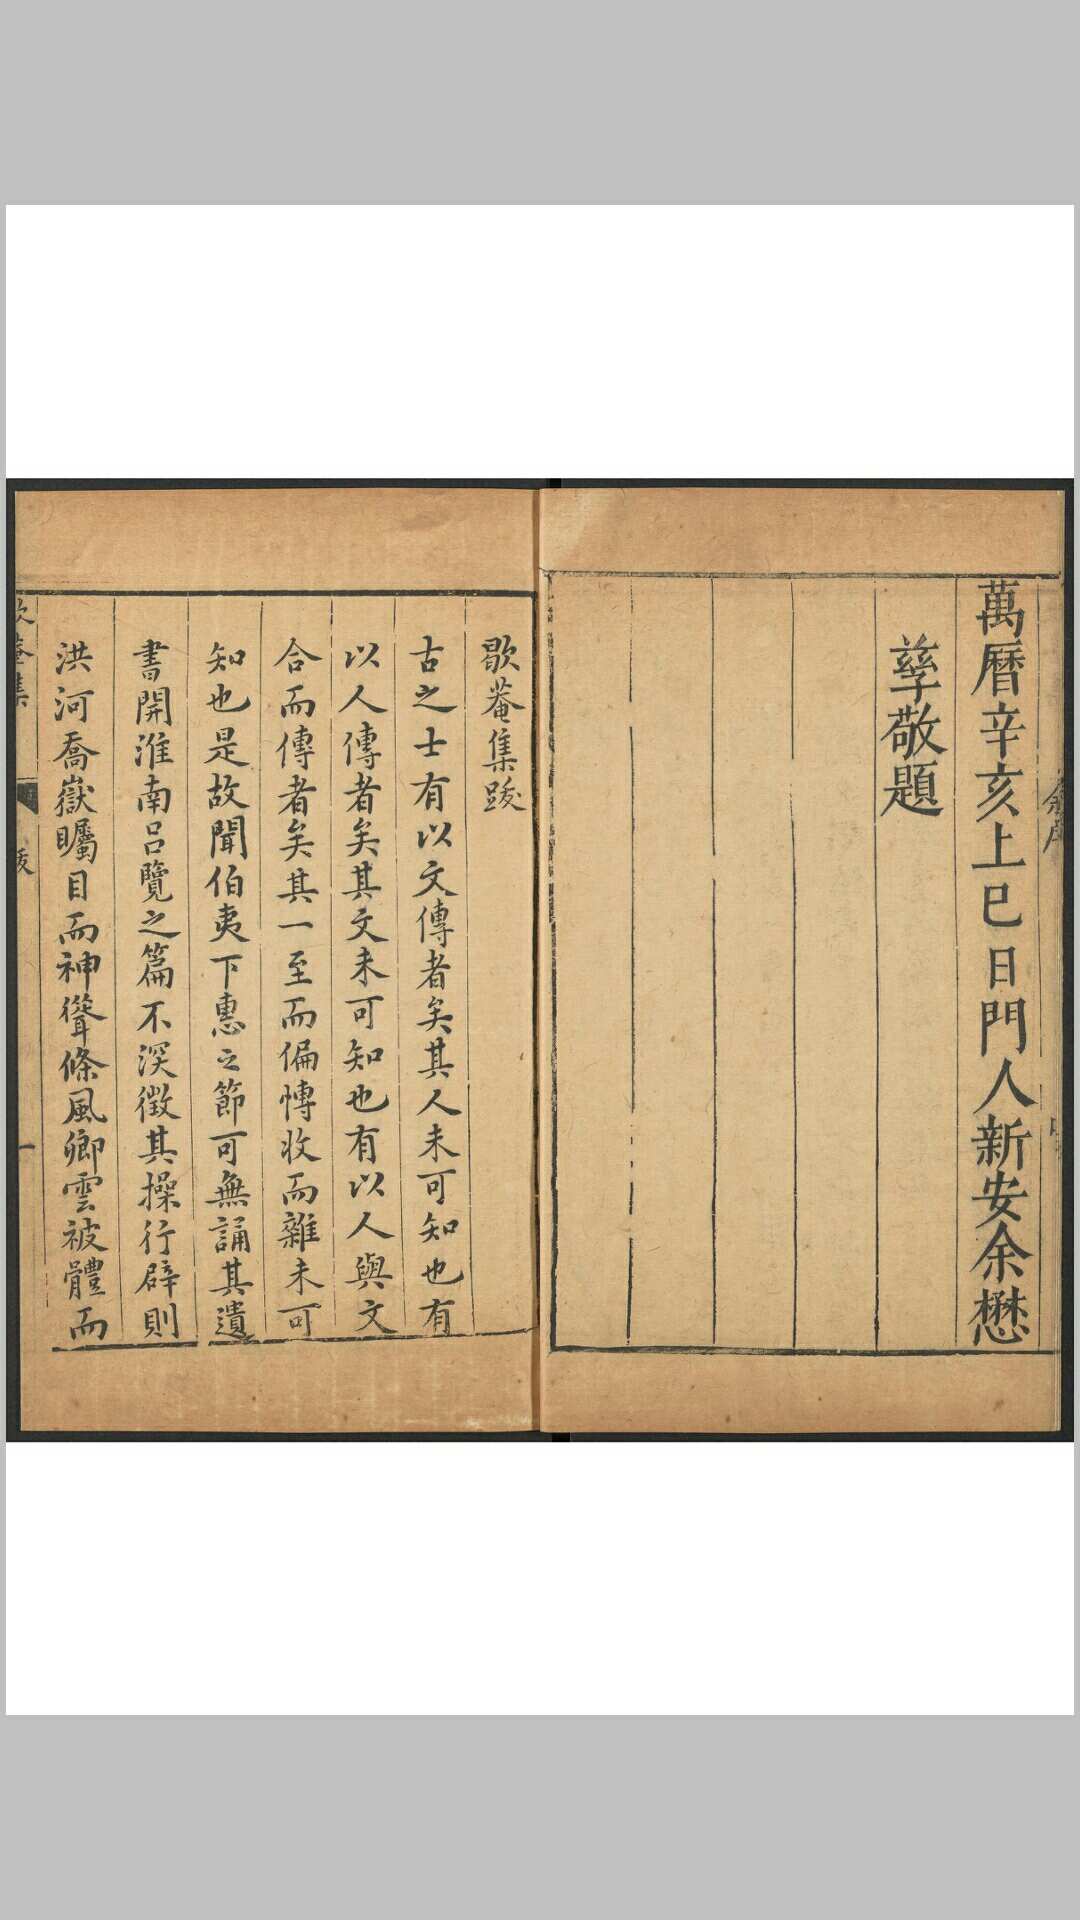 萬曆辛亥上巳日門人新安余懋
孳敬題
歇菴集跋
古之士有以文傳者矣其人未可知也有
以人傳者矣其文未可知也有以人與文
合而傳者矣其一至而偏慱收而雜未可
知也是故聞伯夷下惠之節可無誦其遺
書開淮南呂覽之篇不深徵其操行辟則
洪河喬嶽矚目而神聳條風卿雲被體而